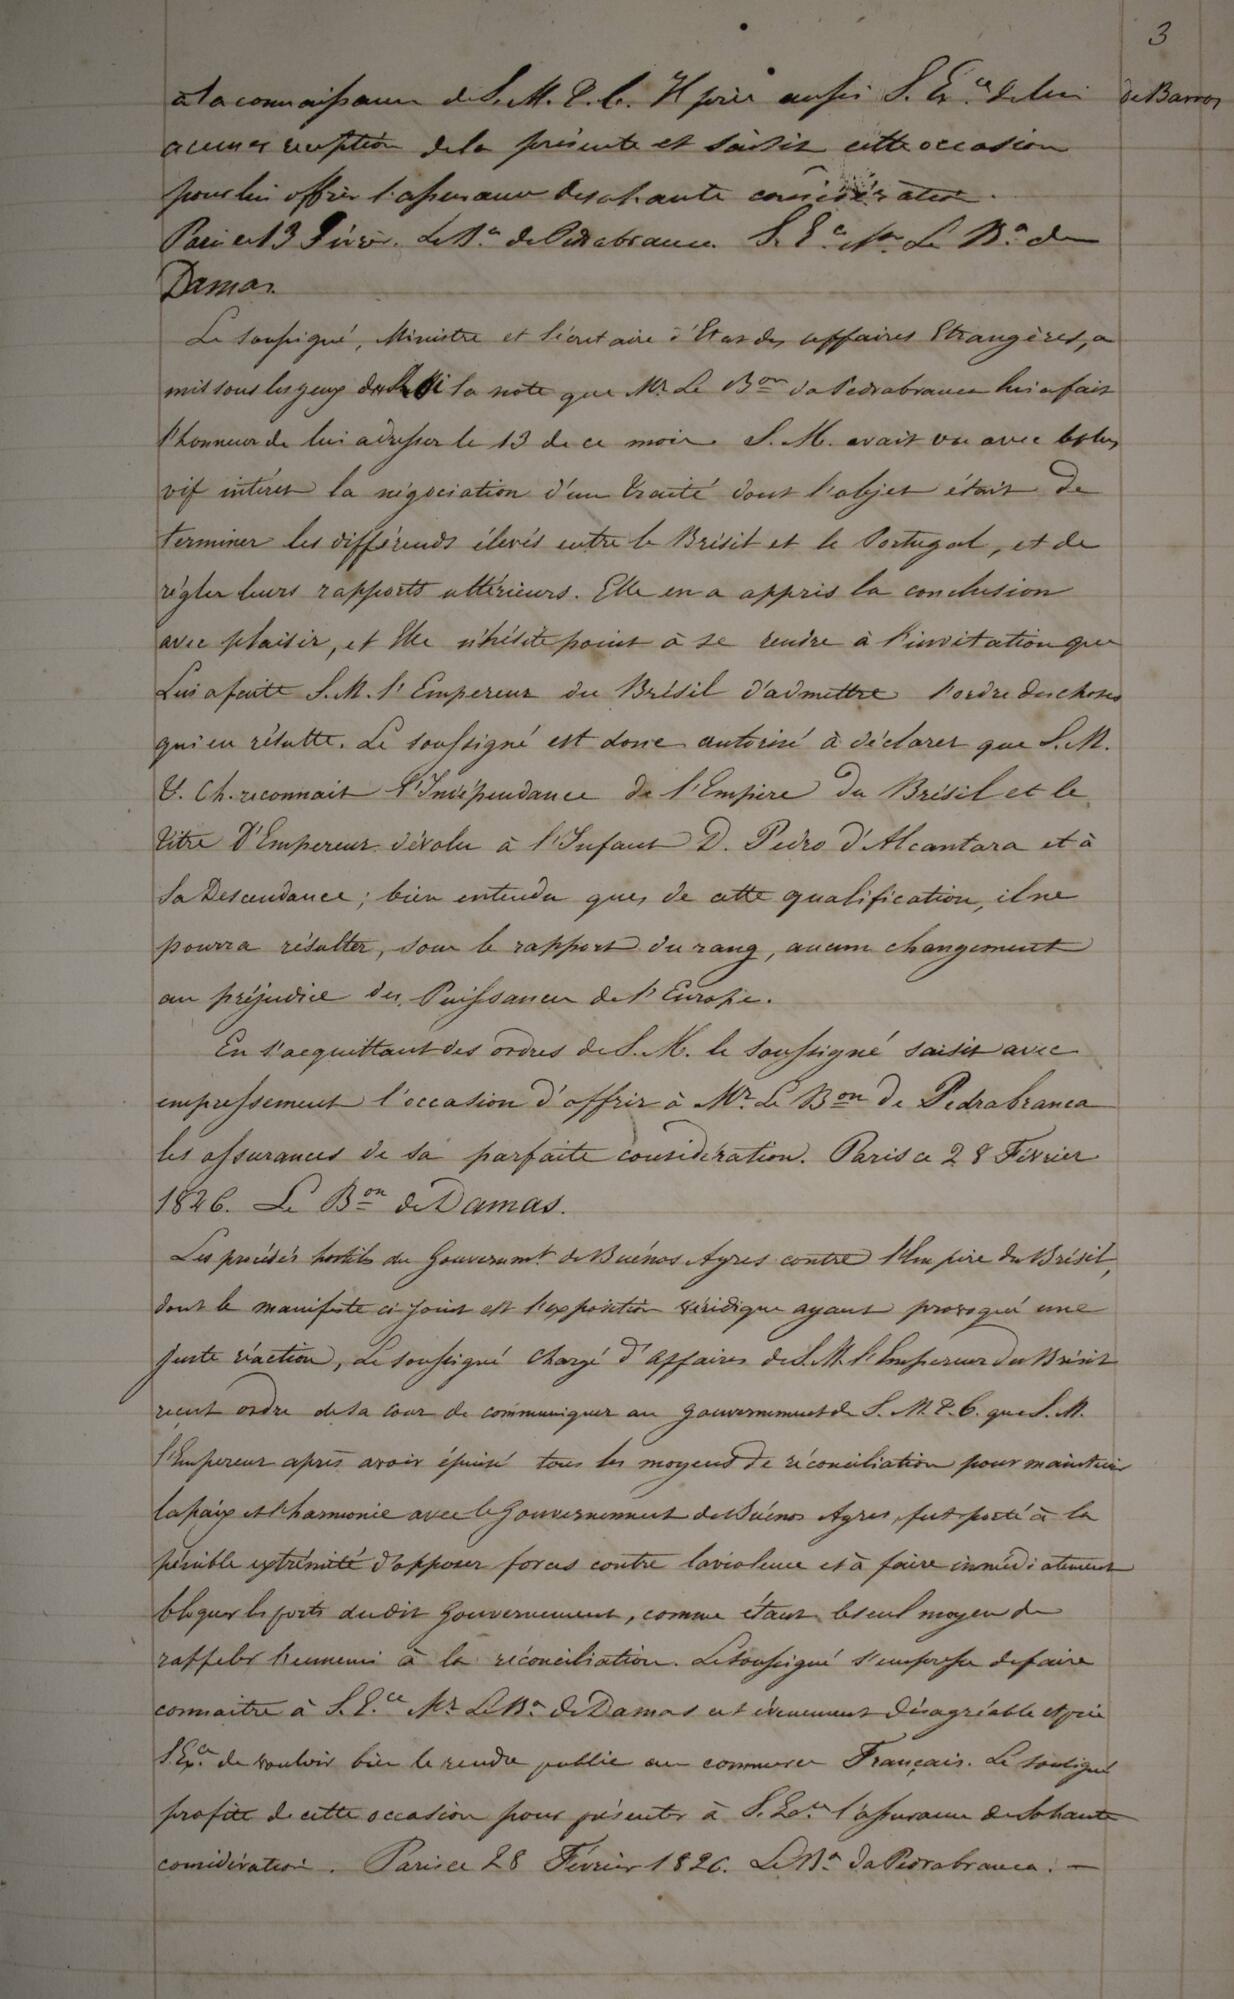 3
à la connaissance de S. M. T. C. Il prie aussi S. Exce. de lui
de Barros
accuser reception de la présente et saisit cette occasion
pour lui offrir l'assurance de sa haute considération.
Paris ce 13 Févrer. Le Bn. de Pedrabranca. S. Ec. Mr. Le Bn. de
Damas.
Le soussigné, Ministre et Sécretaire d'Etat des affaires Etrangères, a
mis sous les yeux du Roi la note que Mr. Le Bon da Pedrabranca lui a fait
l'honneur de lui adresser le 13 de ce mois. S. M. avait vu avec le plus
vif intérêt la négociation d'un traité dont l'objet était de
terminer les différends élevés entre le Brésil et le Portugal, et de
régler leurs rapports ultérieurs. Elle en a appris la conclusion
avec plaisir, et Elle n'hésite point à se rendre à l'invitation que
Lui a faite S. M. l'Empereur du Brésil d'admettre l'ordre des choses
qui en résulte. Le soussigné est donc autorisé à déclarer que S. M.
T. Ch. reconnait l'Indépendance de l'Empire du Brésil et le
titre D'Empereur dévolu à l'Infant D. Pedro d'Alcantara et à
Sa Descendance; bien entendu que, de cette qualification, il ne
pourra résulter, sous le rapport du rang, aucun changement
au préjudice des Puissances de l'Europe.
En s'acquittant des ordres de S. M. le soussigné saisit avec
empressement l'occasion d'offrir à Mr. Le Bon de Pedrabranca
les assurances de sa parfaite considération. Paris ce 28 Février
1826. Le Bon de Damas.
Les procédés hostiles du Gouvernmt. de Buénos Ayres contre l'Empire du Brésil,
dont le manifeste ci joint est l'exposition véridique ayant provoqué une
juste réaction, Le soussigné Chargé d'affaires de S. M. l'Empereur du Brésil
reçut ordre de sa Cour de communiquer au Gouvernement de S. M. T. C. que S. M.
l'Empereur après avoir épuisé tous les moyens de réconciliation pour maintenir
la paix et l'harmonie avec le Gouvernement de Buénos Ayres, fut porté à la
pénible extrémité d'opposer forces contre la violence et à faire immédiatement
bloquer les ports dudit Gouvernement, comme étant le seul moyen de
rappeler l'ennemi à la réconciliation. Le soussigné s'empresse de faire
connaitre à S. Ece. Mr. Le Bn. de Damas cet évenement désagréable et prie
S. Exce. de vouloir bien le rendre public au commerce Français. Le soussigné
profite de cette occasion pour présenter à S. Exce. l'assurance de Sa haute
considération. Paris ce 28 Février 1826. Le Bn. da Pedrabranca. —